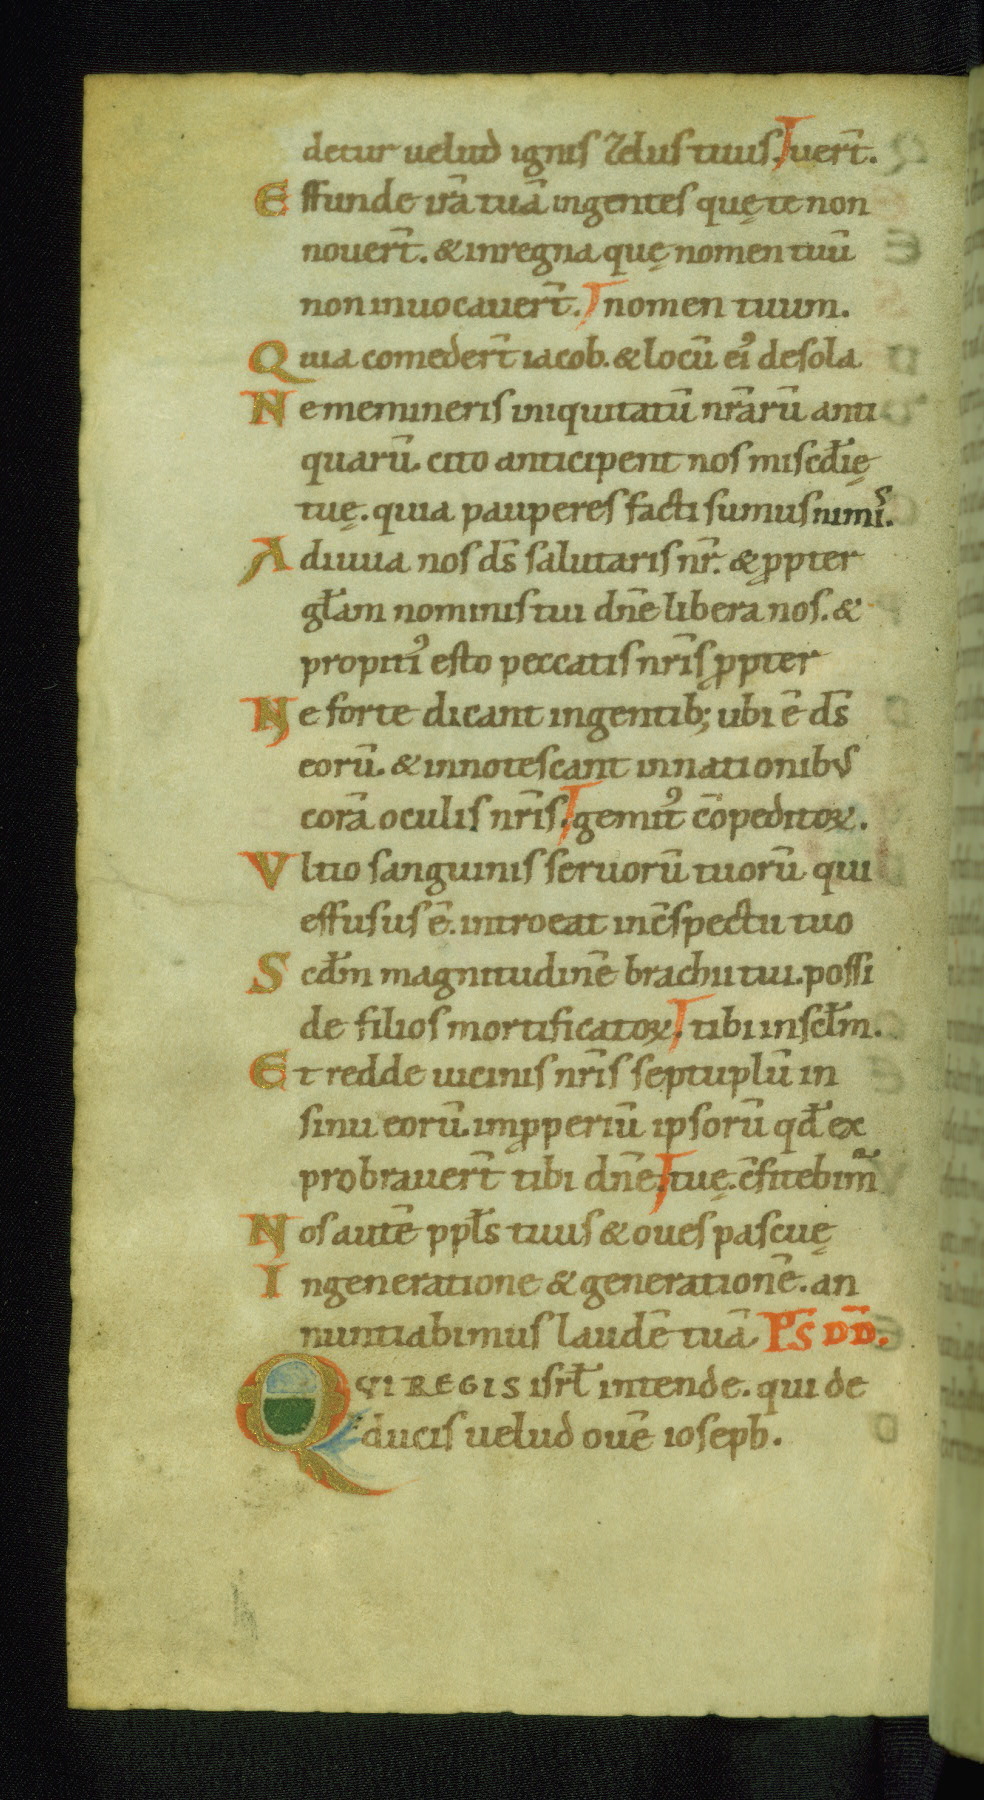 detur uelud ignis zelus tuus. uer̄t.
Effunde irā tuā in gentes quę te non
nouer̄t. & in regna quę nomen tuū
non inuocauer̄t. nomen tuum.
Quia comeder̄t iacob. & locū ei᾽ desola
Ne memineris iniquitatū nr̄arū anti
quarū. cito anticipent nos misc̄dię
tuę. quia pauperes facti sumus nimis.
Adiuua nos ds̄ salutaris nr̄. & ꝓpter
gl̄am nominis tui dn̄e libera nos. &
propiti᾽ esto peccatis nr̄is ꝓpter
Ne forte dicant in gentib; ubi ē ds̄
eorū. & innotescant in nationibus
corā oculis nr̄is. gemit᾽ cōpeditoꝝ.
Vltio sanguinis seruorū tuorū qui
effusus ē. introeat in c̄spectu tuo
Scd̄m magnitudinē brachii tui. possi
de filios mortificatoꝝ. tibi in scl̄m.
Et redde uicinis nr̄is septuplū in
sinu eorū. imꝓperiū ipsorū qd̄ ex
probrauer̄t tibi dn̄e. tuę. c̄fitebim᾽
Nos autē ppl̄s tuus & oues pascuę
In generatione & generationē. an
nuntiabimus laudē tuā. PS̄ DD̄.
QVI REGIS isrl̄ intende. qui de
ducis uelud ouē ioseph.